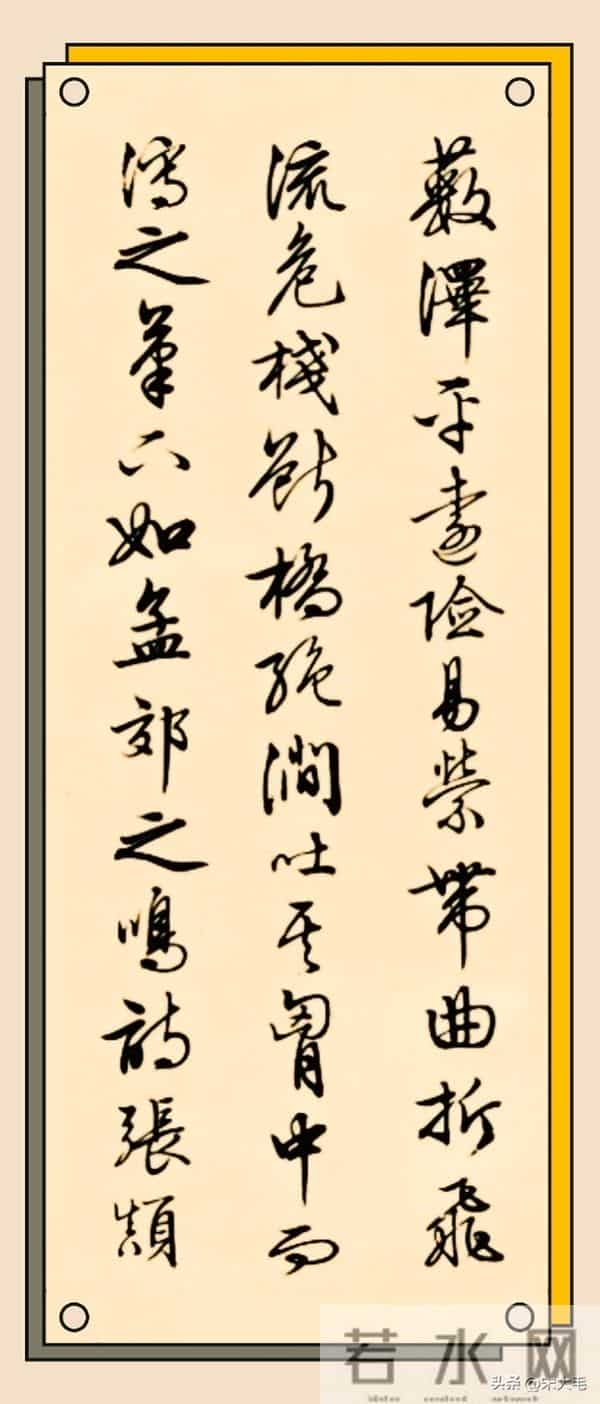 薮澤平遠險易縈帶曲折飛
流危棧斷橋絶澗吐其胷中而
瀉之筆下如孟郊之鳴詩張顛
若水网
头条@宋大毛